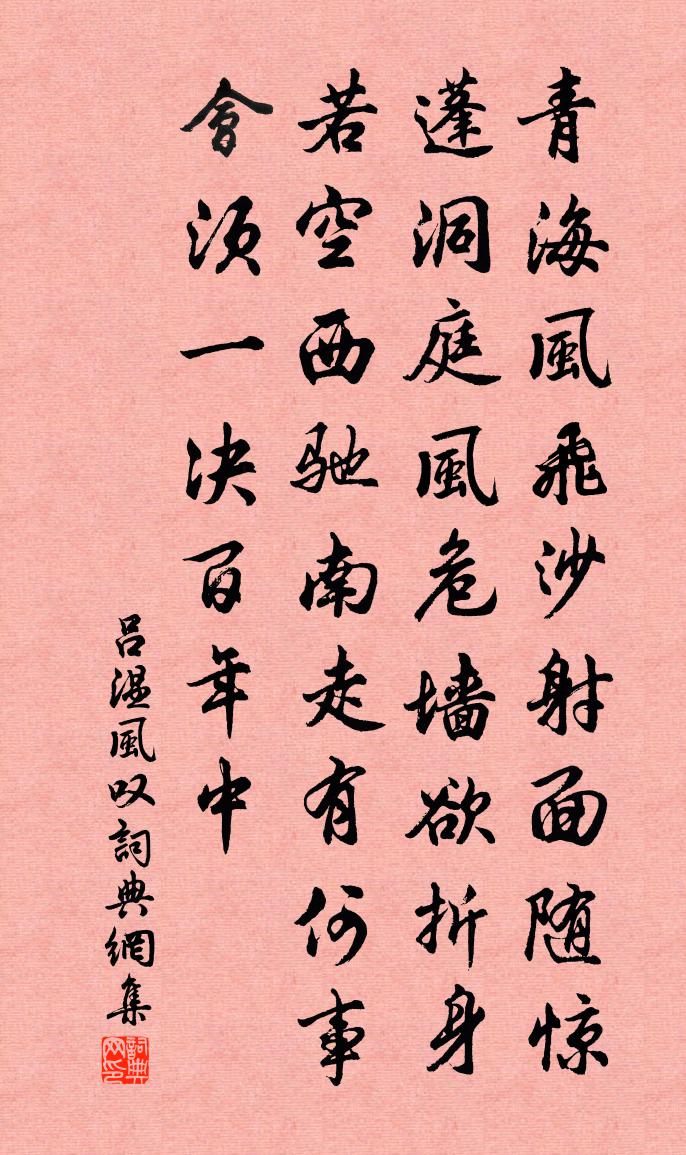 青海風飛沙射面随惊
蓬洞庭風危墙欲折身
若空西驰南走有何事
會须一决百年中
吕温風叹詞典網集
詞典网印